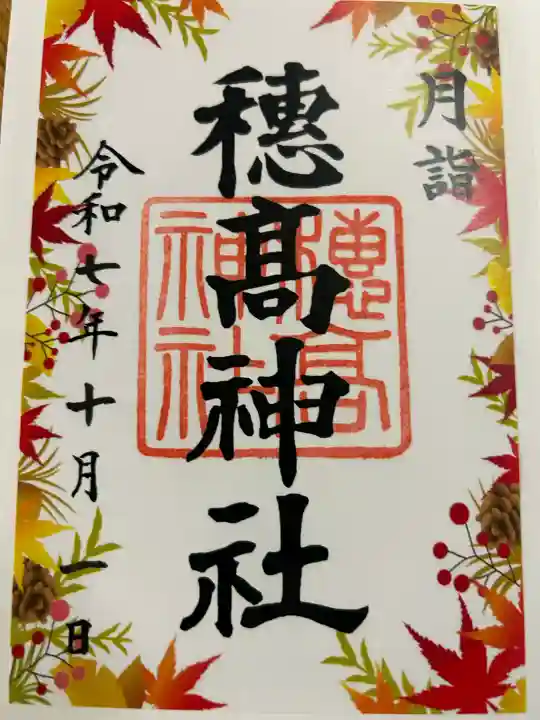 月詣
穂髙神社
穗高
神社
令和七年十月一日